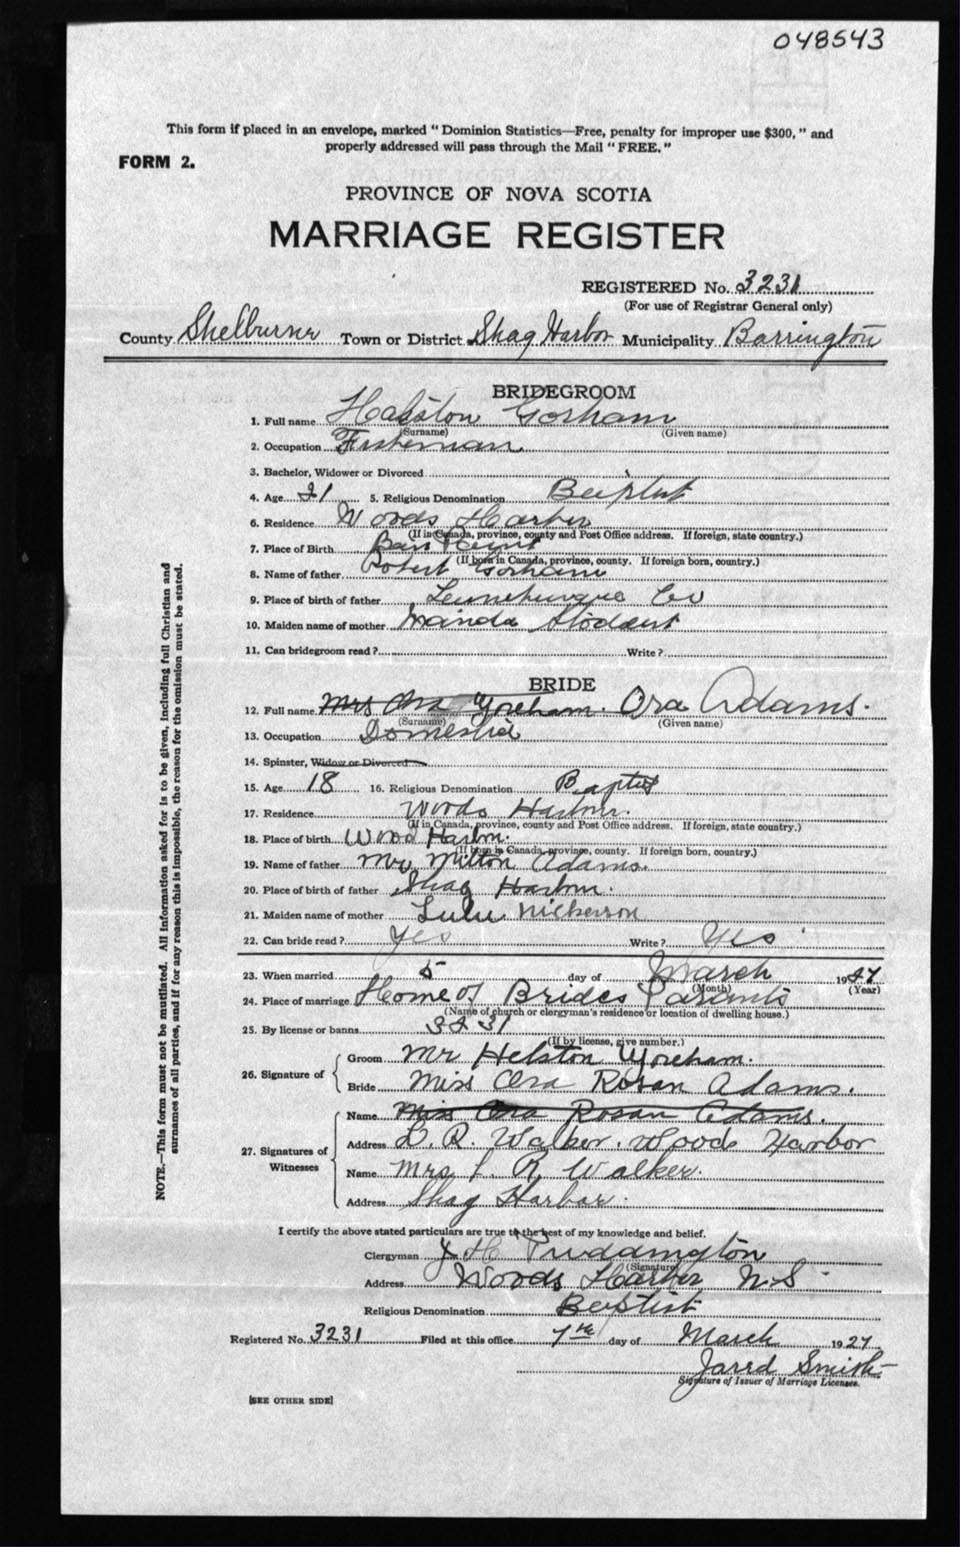 048543
This form if placed in an envelope, marked "Dominion Statistics—Free, penalty for improper use $300," and
properly addressed will pass through the Mail "FREE."
FORM 2.
PROVINCE OF NOVA SCOTIA
MARRIAGE REGISTER
REGISTERED No. 3231
(For use of Registrar General only)
County Shelburne Town or District Shag Harbor Municipality Barrington
BRIDEGROOM
1. Full name Halston Gorham
(Surname) (Given name)
2. Occupation Fisherman
3. Bachelor, Widower or Divorced
4. Age 21 5. Religious Denomination Baptist
6. Residence Woods Harbor
(If in Canada, province, county and Post Office address. If foreign, state country.)
7. Place of Birth Point
(If born in Canada, province, county. If foreign born, country.)
8. Name of father Robert Gorham
9. Place of birth of father Lunenburg Co
10. Maiden name of mother
11. Can bridegroom read? Write?
BRIDE
12. Full name Mrs Ora Goreham. Ora Adams.
(Surname) (Given name)
13. Occupation Domestic
14. Spinster, Widow or Divorced
15. Age 18 16. Religious Denomination Baptist
17. Residence Woods Harbor.
(If in Canada, province, county and Post Office address. If foreign, state country.)
18. Place of birth Wood Harbor.
(If born in Canada, province, county. If foreign born, country.)
19. Name of father Mr Milton Adams.
20. Place of birth of father Shag Harbor.
21. Maiden name of mother Lulu Nickerson
22. Can bride read? Yes Write? Yes
23. When married 5 day of March 1927
(Month) (Year)
24. Place of marriage Home of Brides Parants
(Name of church or clergyman's residence or location of dwelling house.)
25. By license or banns 3231
(If by license, give number.)
26. Signature of
Groom Mr Helston Goreham.
Bride Miss Ora Rosan Adams.
27. Signatures of Witnesses
Name Miss Ora Rosan Adams.
Address L. R. Walker. Woods Harbor
Name Mrs L. R Walker.
Address Shag Harbor.
I certify the above stated particulars are true to the best of my knowledge and belief.
Clergyman H Puddington
(Signature)
Address Woods Harbor N.S
Religious Denomination Baptist
Registered No. 3231 Filed at this office 7th day of March 1927
Jared Smith
Signature of Issuer of Marriage Licenses.
[SEE OTHER SIDE]
NOTE.—This form must not be mutilated. All information asked for is to be given, including full Christian and
surnames of all parties, and if for any reason this is impossible, the reason for the omission must be stated.